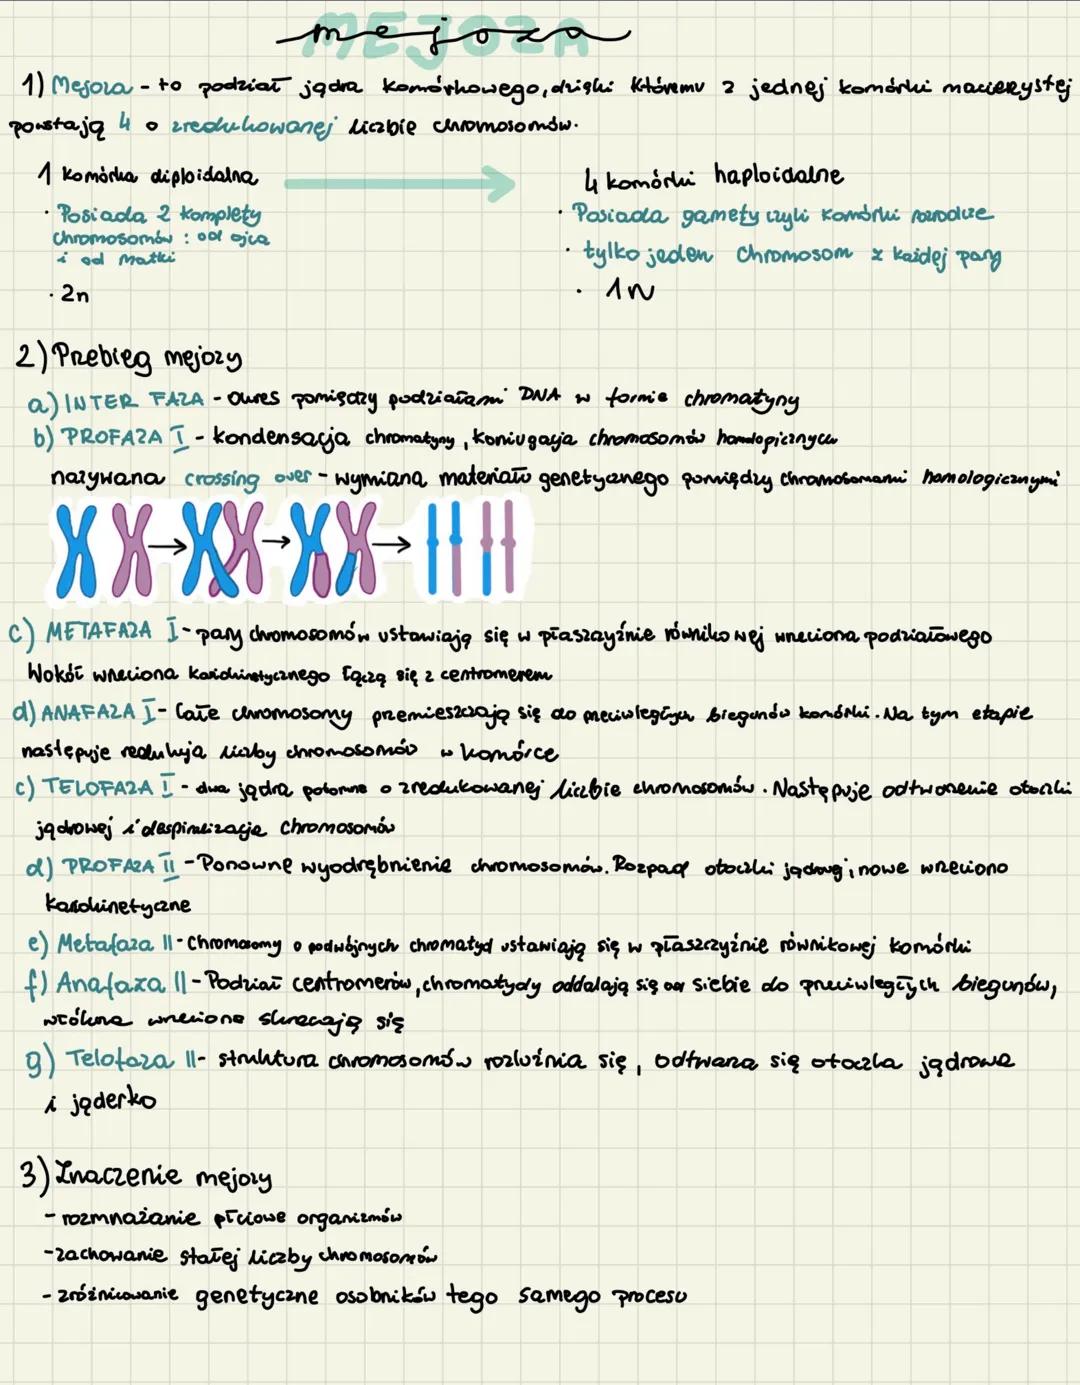 MEJOZA
mejoza
1) Mejoza - to podział jądra komórkowego, dzięki któremu z jednej komórki macierzystej
powstają 4 o zredukowanej liczbie chromosomów.
1 komórka diploidalna
4 komórki haploidalne
· Posiada 2 komplety
chromosomów : od ojca
i od matki
· 2n
· Posiada gamety czyli komórki rozrodcze
· tylko jeden chromosom z każdej pary
· 1N
2) Przebieg mejozy
a) INTER FAZA - okres pomiędzy podziałami DNA w formie chromatyny
b) PROFAZA I - kondensacja chromatyny, koniugacja chromosomów homologicznych
nazywana crossing over - wymiana materiału genetycznego pomiędzy chromosomami homologicznymi
c) METAFAZA I - pary chromosomów ustawiają się w płaszczyźnie równikowej wrzeciona podziałowego
Wokół wrzeciona kariokinetycznego łączą się z centromerem
d) ANAFAZA I - Całe chromosomy przemieszczają się do przeciwległych biegunów komórki. Na tym etapie
następuje redukcja liczby chromosomów w komórce
c) TELOFAZA I - dwa jądra potomne o zredukowanej liczbie chromosomów. Następuje odtworzenie otoczki
jądrowej i despiralizacja chromosomów
d) PROFAZA II - Ponowne wyodrębnienie chromosomów. Rozpad otoczki jądrowej, nowe wrzeciono
kariokinetyczne
e) Metafaza II - Chromosomy o podwójnych chromatyd ustawiają się w płaszczyźnie równikowej komórki
f) Anafaza II - Podział centromerów, chromatydy oddalają się od siebie do przeciwległych biegunów,
włókna wrzeciona skracają się
g) Telofaza II - struktura chromosomów rozluźnia się, odtwarza się otoczka jądrowa
i jąderko
3) Znaczenie mejozy
- rozmnażanie płciowe organizmów
- zachowanie stałej liczby chromosomów
- zróżnicowanie genetyczne osobników tego samego procesu